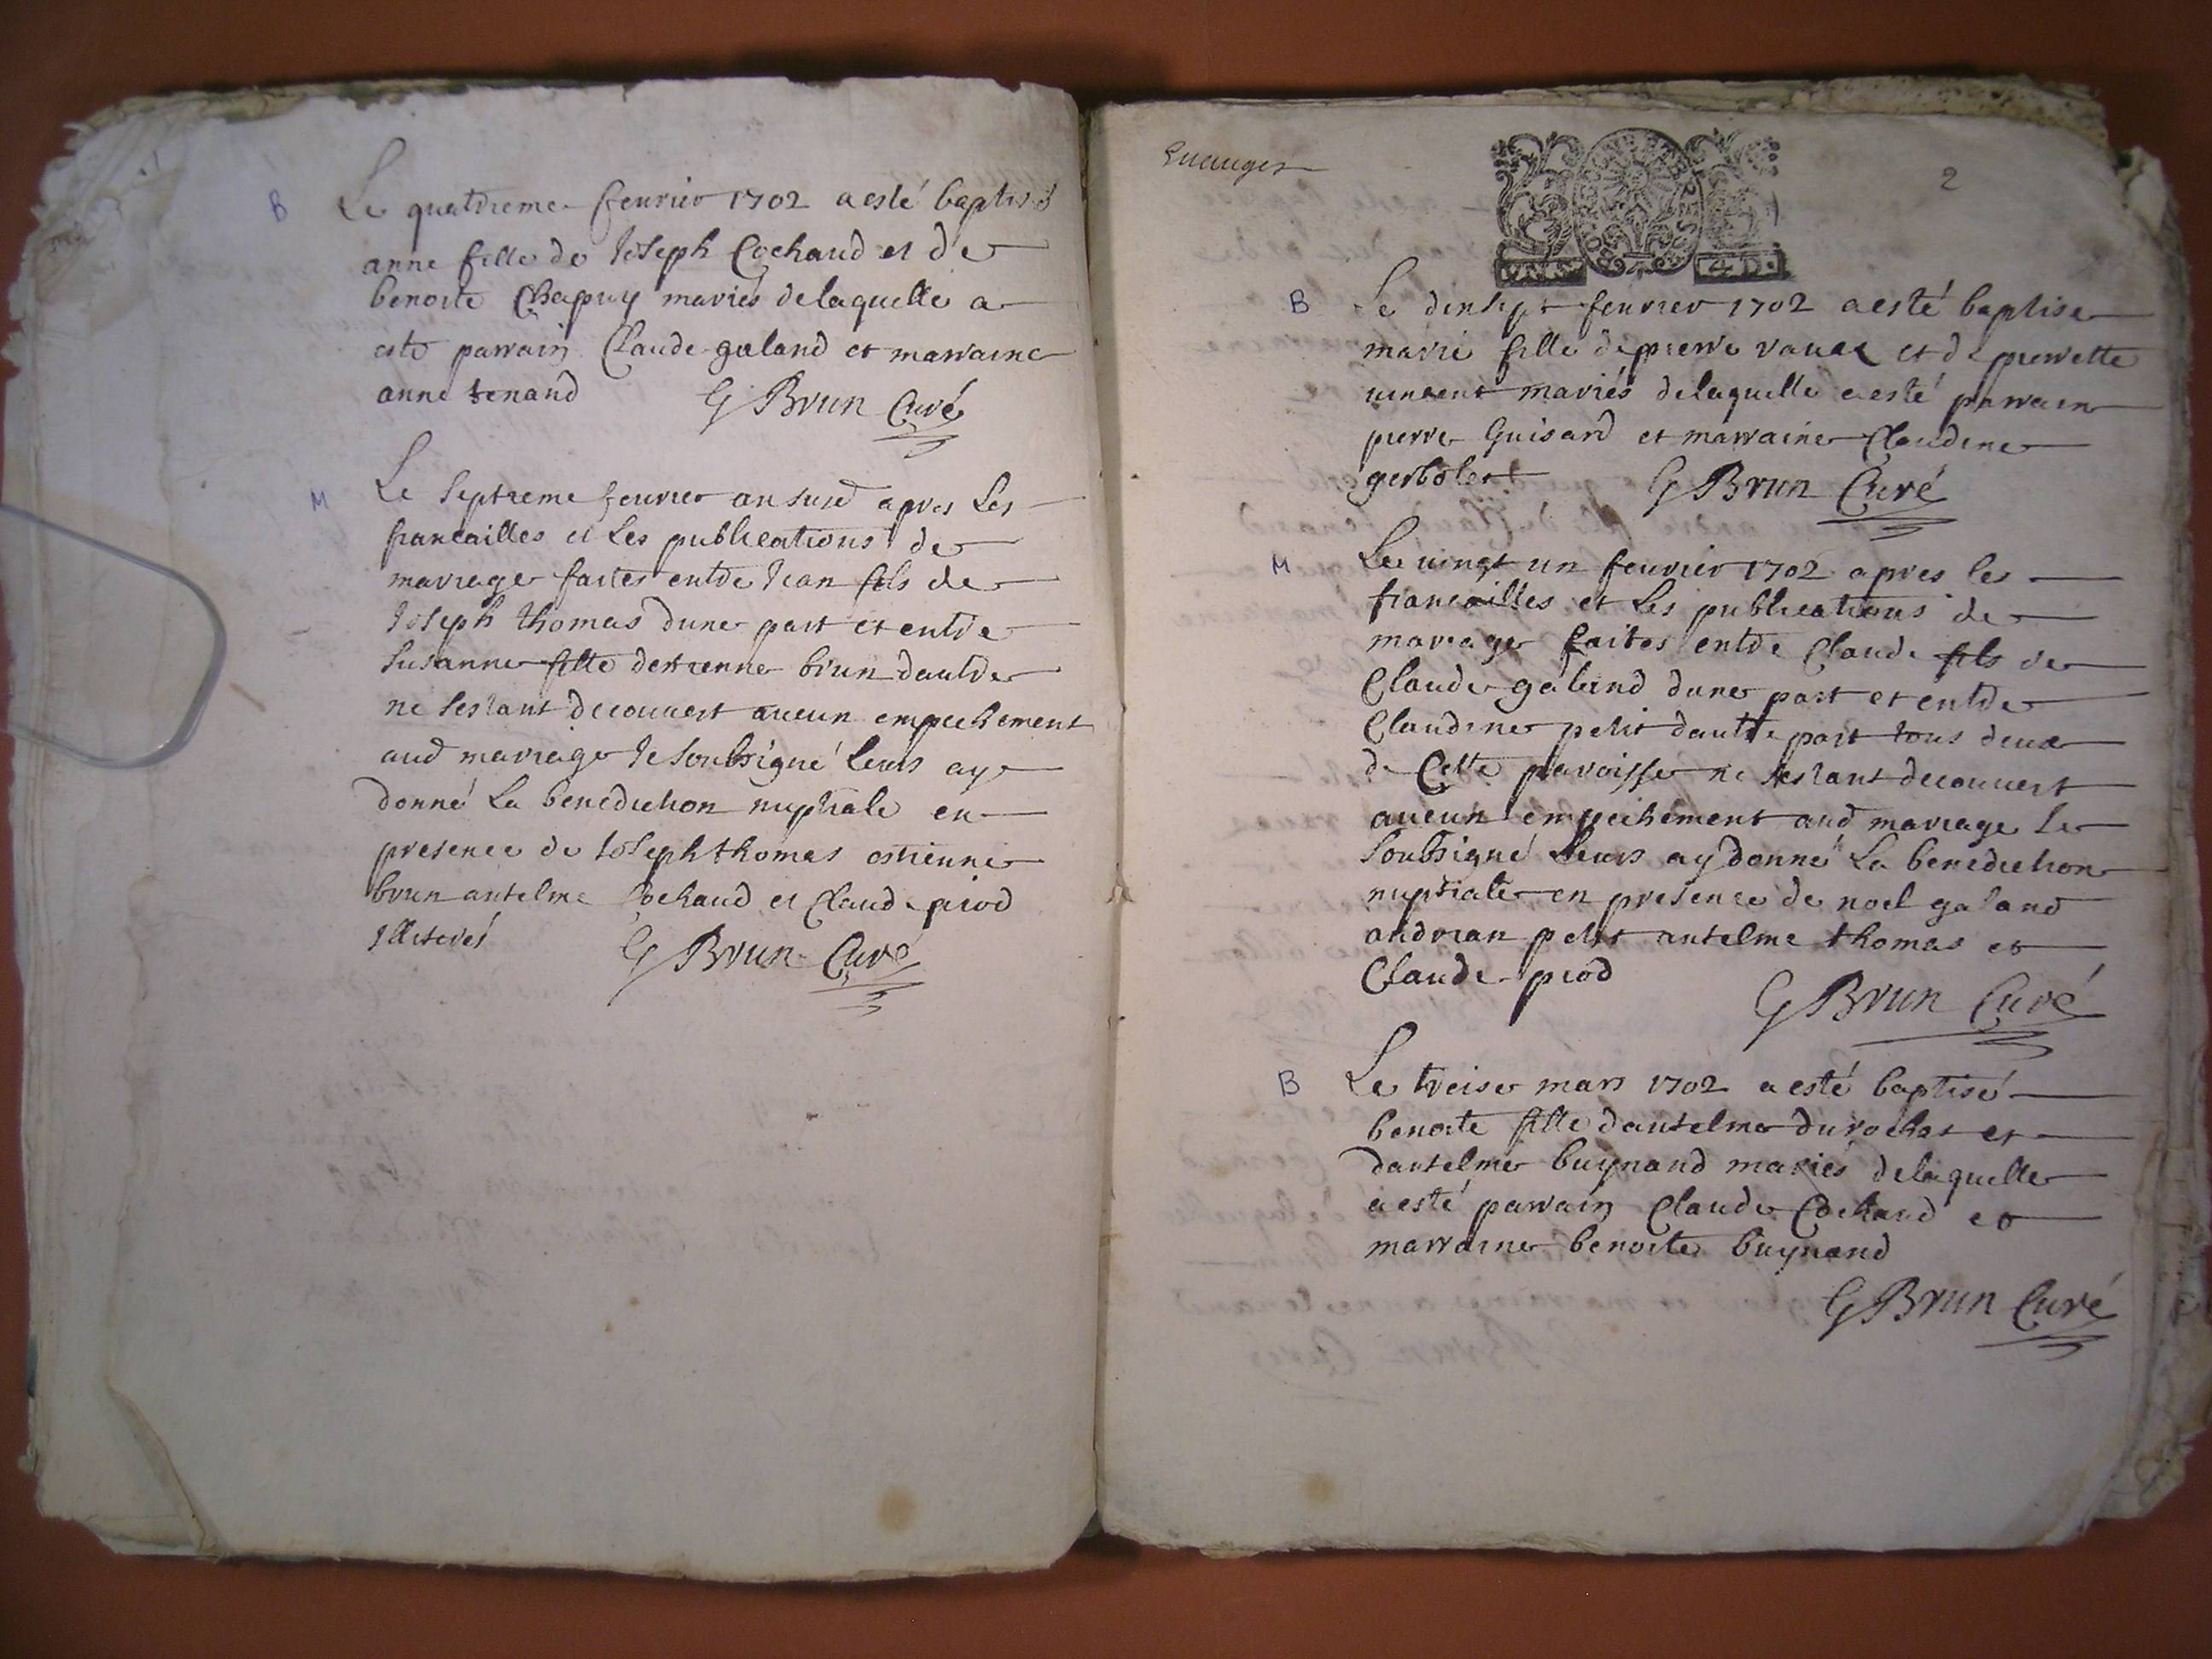 B Le quatrieme fevrier 1702 a esté baptisé
anne fille de Joseph Cochaud et de
benoite Chapuy mariés de laquelle a
esté parrain Claude galand et marraine
anne tenand G Brun Curé
M Le septieme fevrier an susd apres Les
fiancailles et Les publications de
mariage faites entre Jean fils de
Joseph thomas dune part et entre
Susanne fille destienne brun daultre
ne sestant decouvert aucun empechement
aud mariage Je soubsigné leurs aye
donné La benediction nuptiale en
presence de Joseph thomas estienne
brun antelme Cochaud et Claude piod
Illiterés G Brun Curé
2
B Le dixsept fevrier 1702 a esté baptise
marie fille de pierre et de pierrette
vincent mariés de laquelle a esté parrain
pierre Guisard et marraine Claudine
gerbolet G Brun Curé
M Le vingt un fevrier 1702 apres les
fiancailles et Les publications de
mariage faites entre Claude fils de
Claude galand dune part et entre
Claudine petit daultre part tous deux
de Cette paroisse ne sestant decouvert
aucun empechement aud mariage Je
soubsigné Leurs ay donné La benediction
nuptiale en presence de noel galand
andrean petit antelme thomas et
Claude piod
G Brun Curé
B Le treise mars 1702 a esté baptisé
benoite fille dantelme durochat et
dantelme buynand mariés de laquelle
a esté parrain Claude Cochaud et
marraine benoite buynand
G Brun Curé